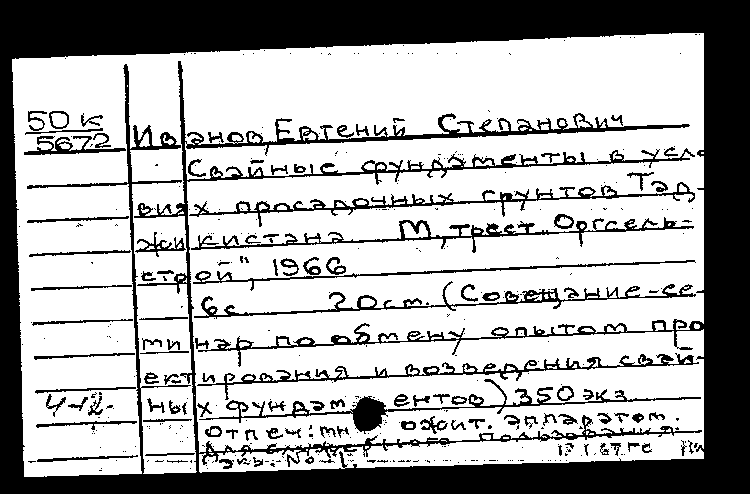 50 к
5672
Иванов, Евгений Степанович
Свайные фундаменты в усло
виях просадочных грунтов Тад-
жикистана М., трест „Оргсель-
строй", 1966
6 с. 20 см. (Совещание-се-
минар по обмену опытом про
ектирования и возведения свай-
ных фундаментов) 350 экз.
4-12-
Отпеч. множит. аппаратом.
Для служебного пользования.
Экз. № 1.